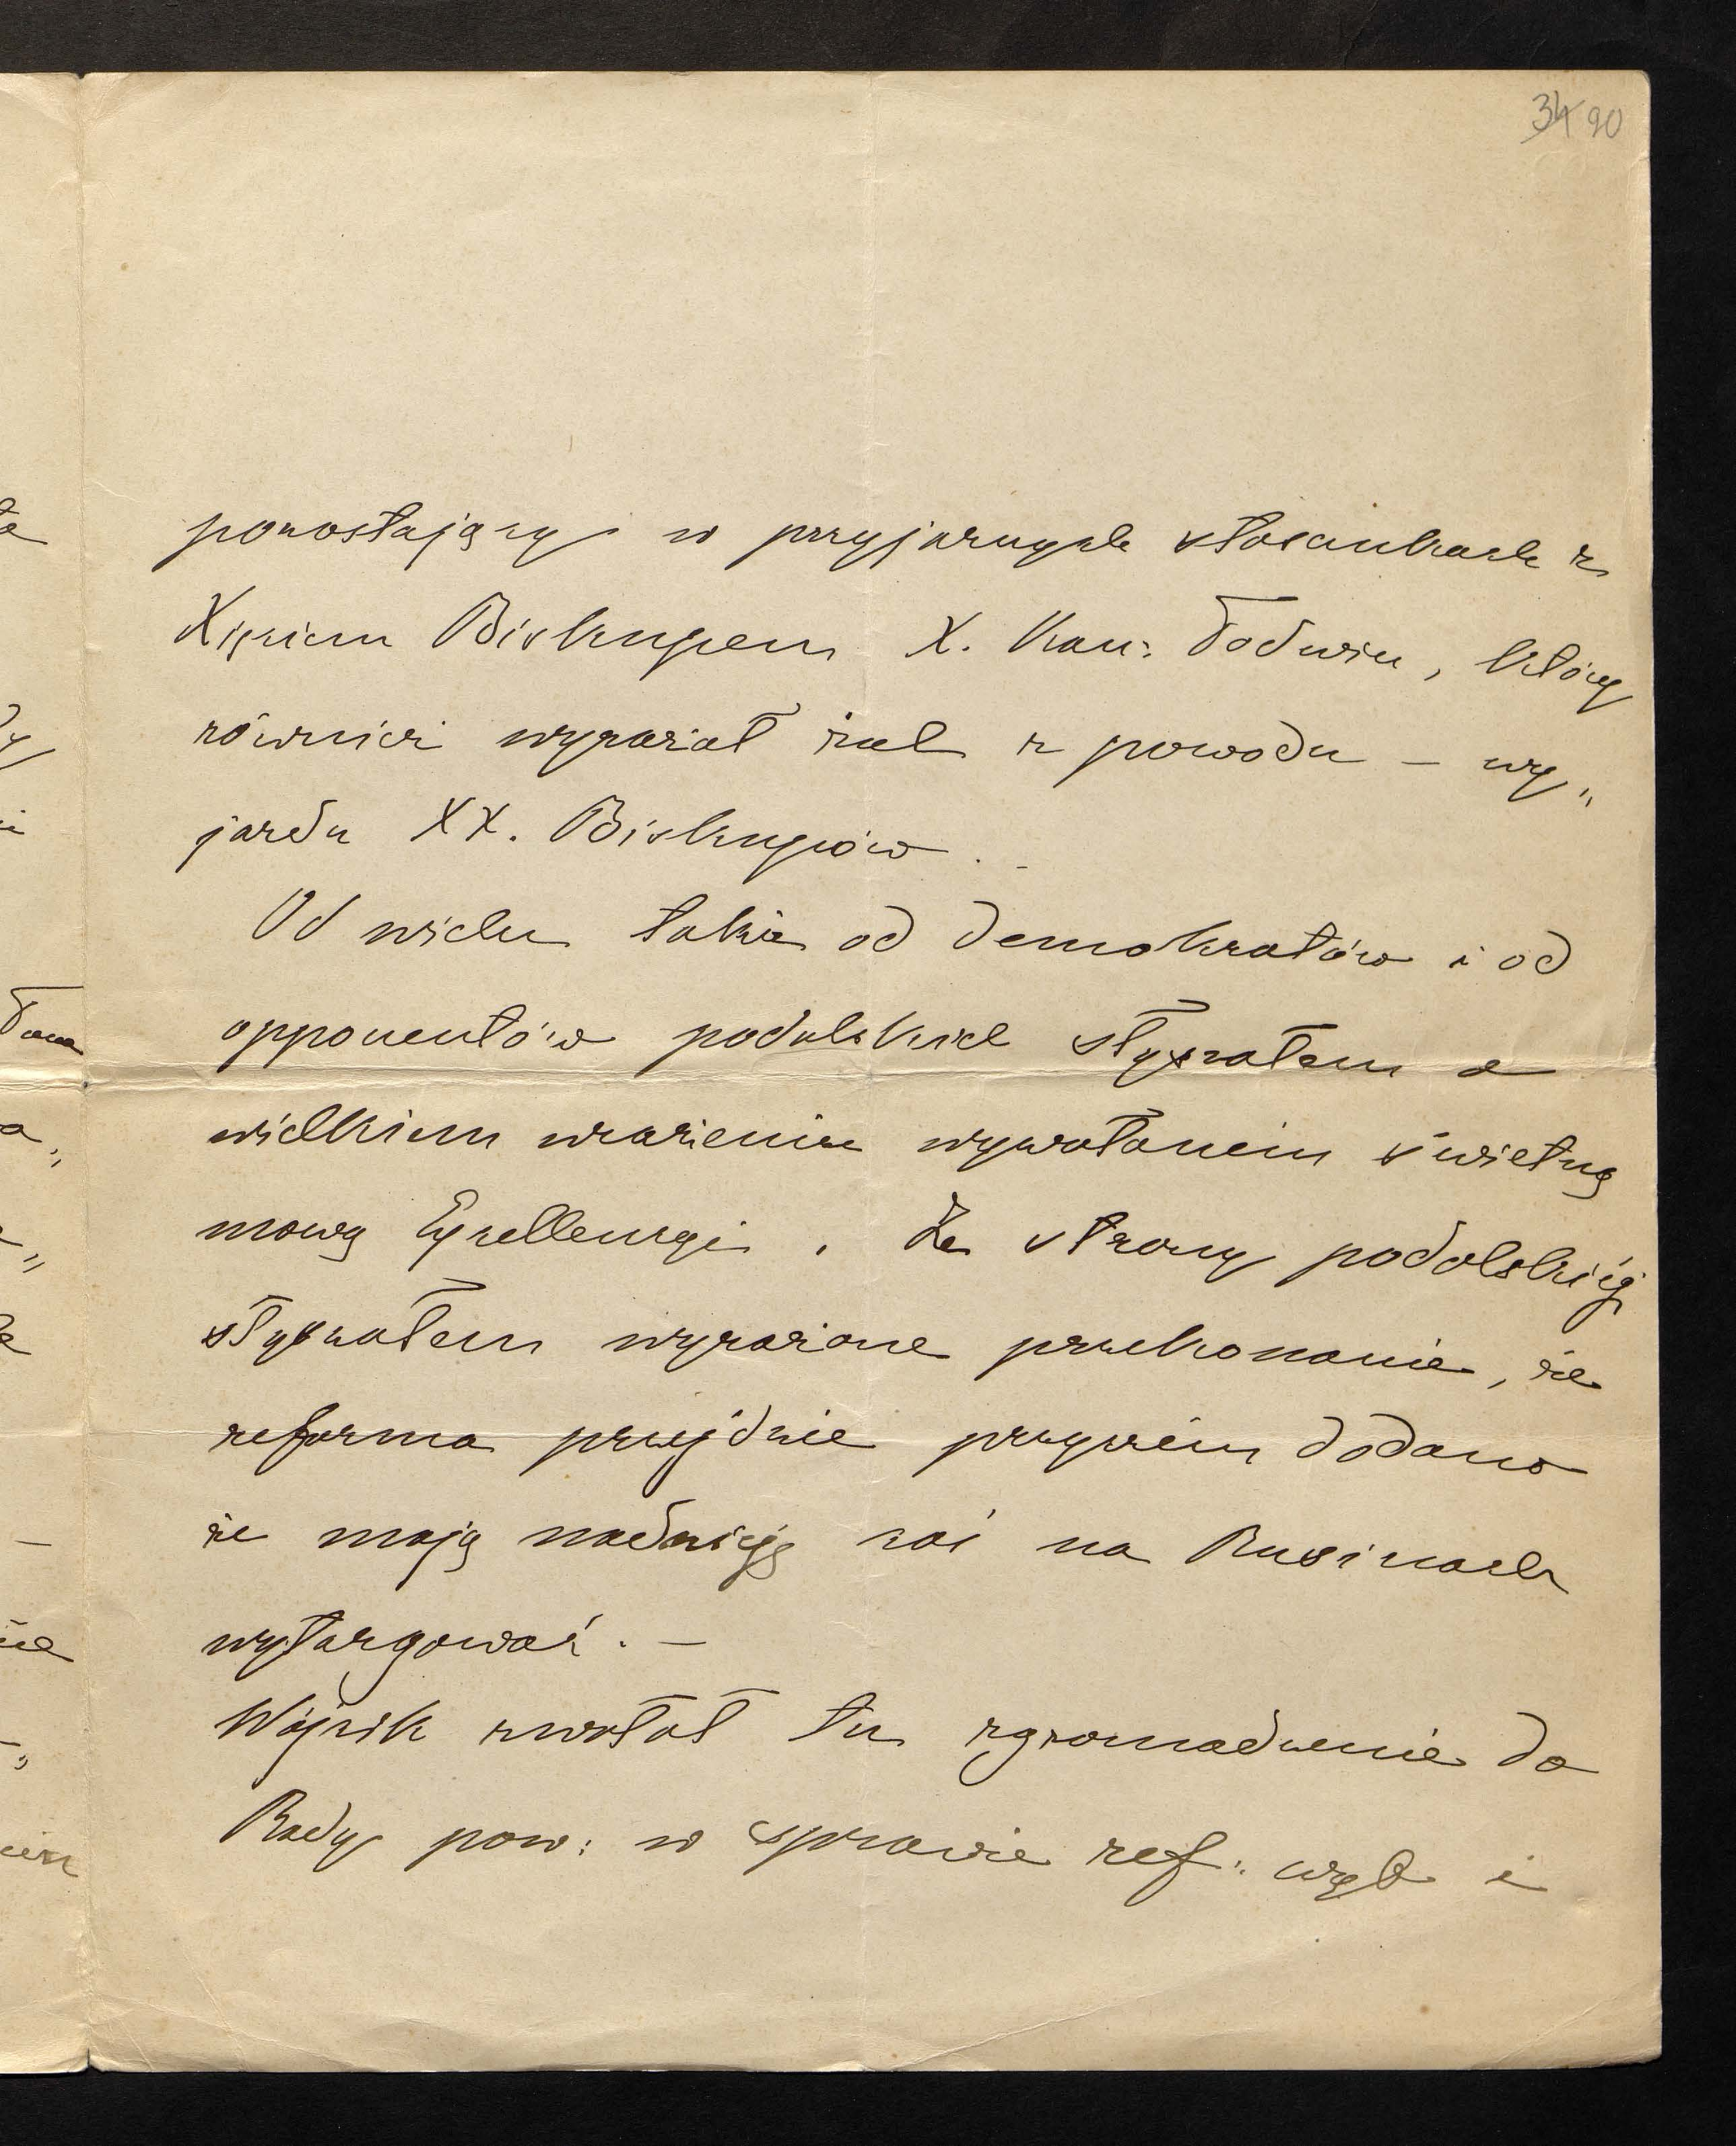 34 90
pozostający w przyjaznych stosunkach z
Xięciem Biskupem X. Kan:, który
również wyrażał żal z powodu – wy„
jazdu XX. Biskupów.
Od wielu także od demokratów i od
opponentów podolskich słyszałem o
wielkiem wrażeniu wywołanem świetną
mową Exellencyi. Ze strony podolskiéj
słyszałem wyrażone przekonanie, że
reforma przejdzie przyczém dodano
że mają nadzieję coś na Rusinach
wytargować. –
Wójcik zwołał tu zgromadzenie do
Rady pow: w sprawie ref: wyb i